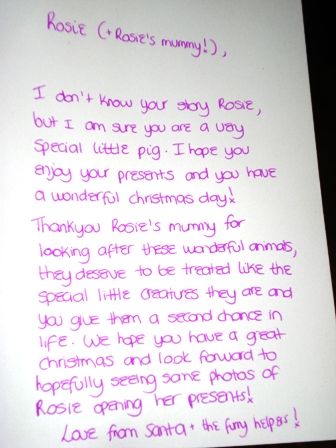 Rosie (+ Rosie's mummy!),
I don't know your story Rosie,
but I am sure you are a very
special little pig. I hope you
enjoy your presents and you have
a wonderful christmas day!x
Thankyou Rosie's mummy for
looking after these wonderful animals,
they deserve to be treated like the
special little creatures they are and
you give them a second chance in
life. We hope you have a great
christmas and look forward to
hopefully seeing some photos of
Rosie opening her presents!x
Love from Santa + the furry helpers!x